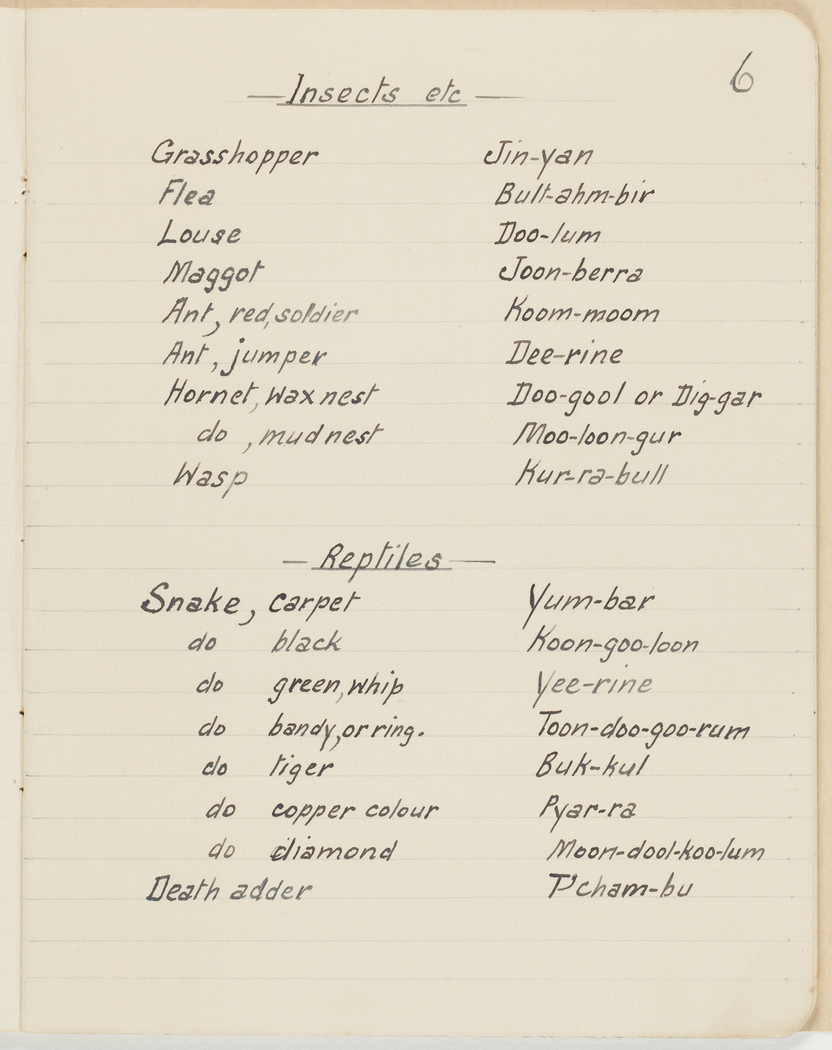 6
— Insects etc —
Grasshopper Jin-yan
Flea Bult-ahm-bir
Louse Doo-lum
Maggot Joon-berra
Ant, red, soldier Koom-moom
Ant, jumper Dee-rine
Hornet, wax nest Doo-gool or Dig-gar
do , mud nest Moo-loon-gur
Wasp Kur-ra-bull
— Reptiles —
Snake, carpet Yum-bar
do black Koon-goo-loon
do green, whip Yee-rine
do bandy, or ring. Toon-doo-goo-rum
do tiger Buk-kul
do copper colour Pyar-ra
do diamond Moon-dool-koo-lum
Death adder T'cham-bu